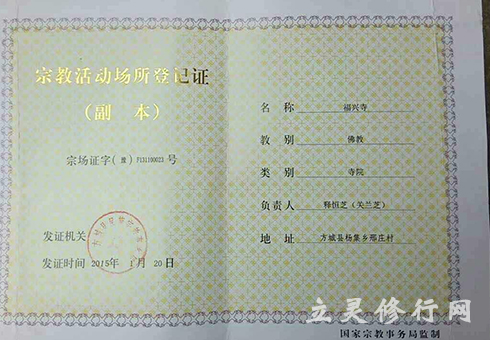 宗教活动场所登记证
（副 本）
宗场证字(豫)F131190023号
发证机关
发证时间 2015年 1月 20日
名 称 福兴寺
教 别 佛教
类 别 寺院
负责人 释恒芝（关兰芝）
地 址 方城县杨集乡邢庄村
国家宗教事务局监制
立灵修行网